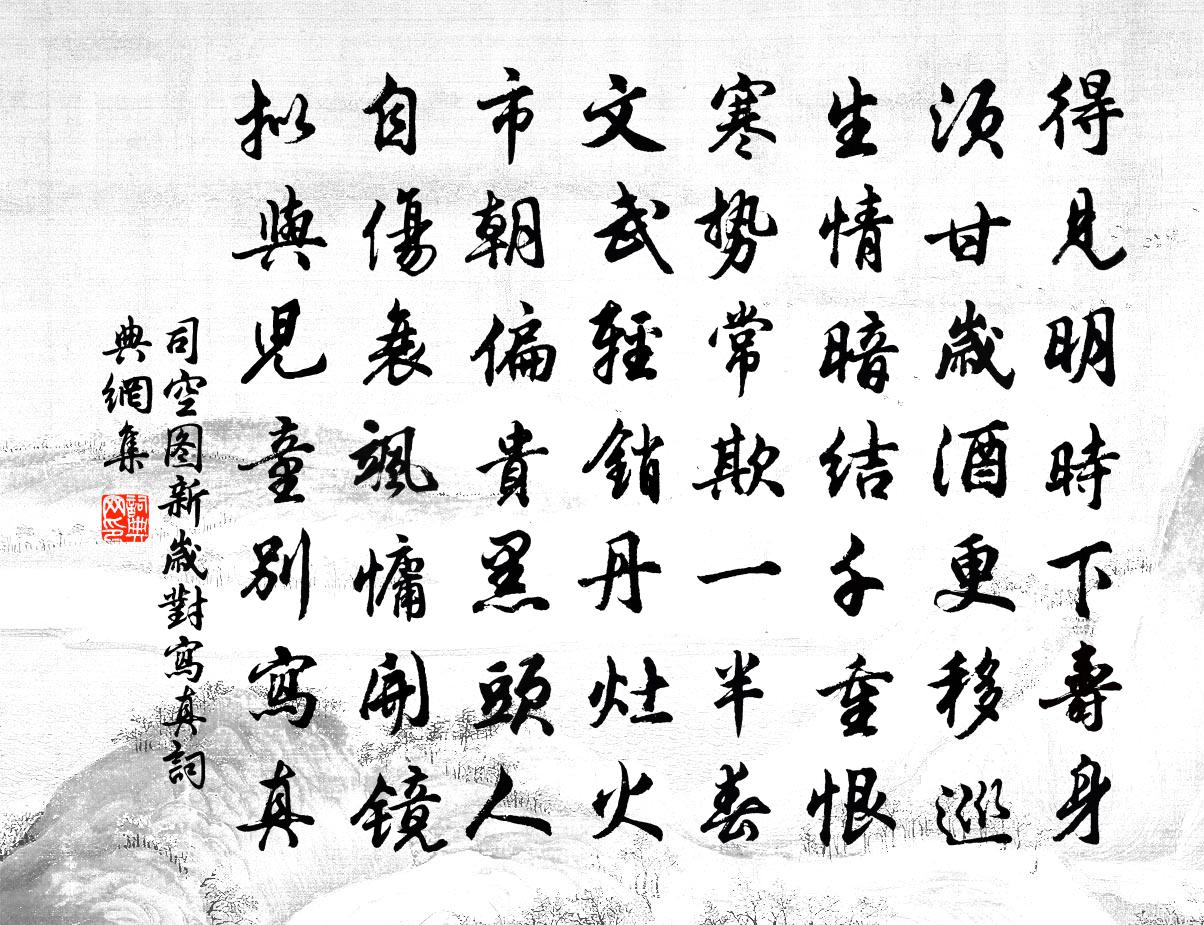 得見明時下壽身
須甘歲酒更移巡
生情暗結千重恨
寒勢常欺一半春
文武輕銷丹灶火
市朝偏貴黑頭人
自傷衰颯慵開鏡
拟與兒童別寫真
司空图新歲對寫真詞
典網集
詞典
网印